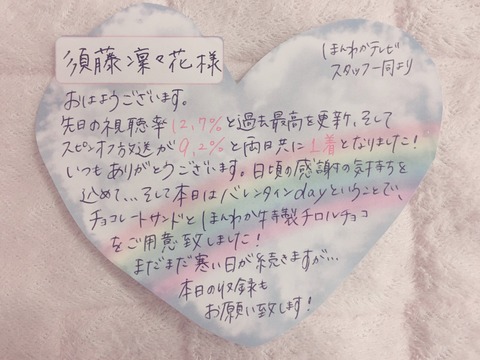 須藤凜々花様
ほんわかテレビ
スタッフ一同より
おはようございます。
先日の視聴率12.7%と過去最高を更新、そして
スピンオフ放送が9.2%と両日共に1着となりました!
いつもありがとうございます。日頃の感謝の気持ちを
込めて...そして本日はバレンタインdayということで、
チョコレートサンドとほんわか特製チロルチョコ
をご用意致しました!
まだまだ寒い日が続きますが...
本日の収録も
お願い致します!